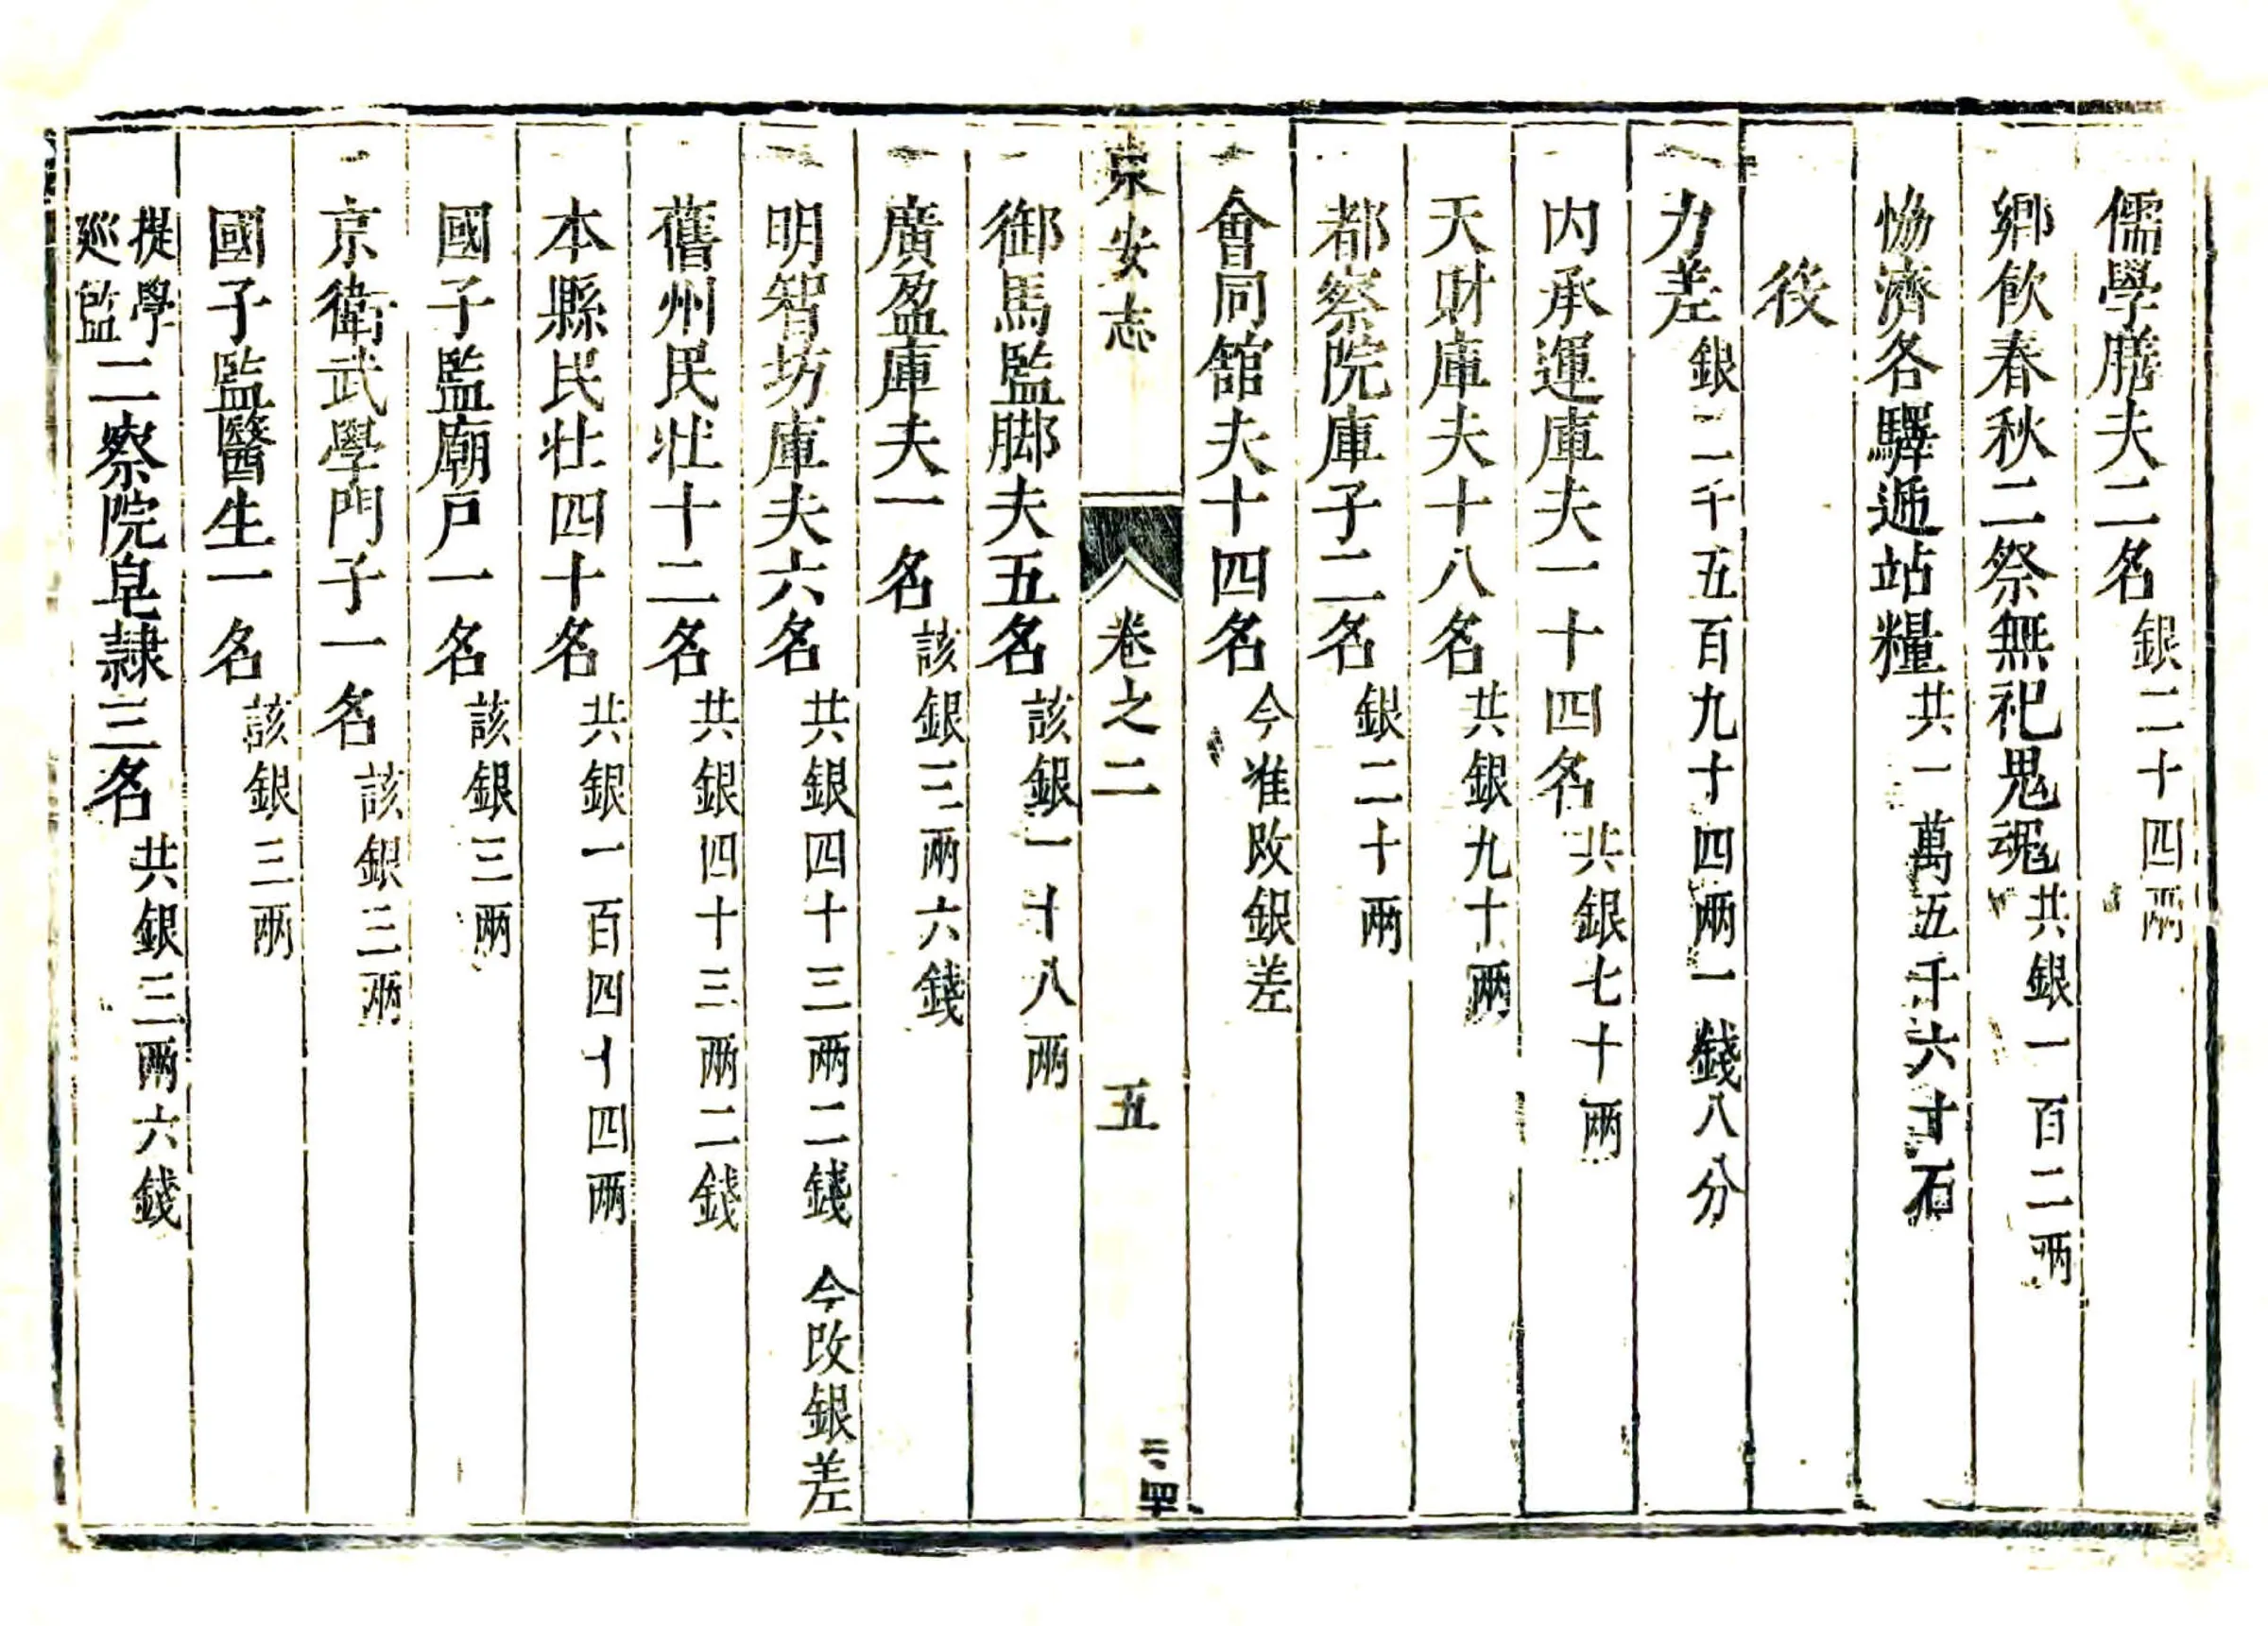 儒學膳夫二名銀二十四兩
鄉飲春秋二祭無祀鬼魂共銀一百二兩
恊濟各驛遞站糧共一萬五千六十石
後
力差銀二千五百九十四兩一錢八分
内承運庫夫一十四名共銀七十兩
天財庫夫十八名共銀九十兩
都察院庫子二名銀二十兩
會同舘夫十四名今准改銀差
東安志 卷之二 五
御馬監脚夫五名該銀一十八兩
廣盈庫夫一名該銀三兩六錢
明智坊庫夫六名共銀四十三兩二錢 今改銀差
舊州民壮十二名共銀四十三兩二錢
本縣民壮四十名共銀一百四十四兩
國子監廟戸一名該銀三兩
京衛武學門子一名該銀三兩
國子監醫生一名該銀三兩
提學廵監二察院皂隸三名共銀三兩六錢